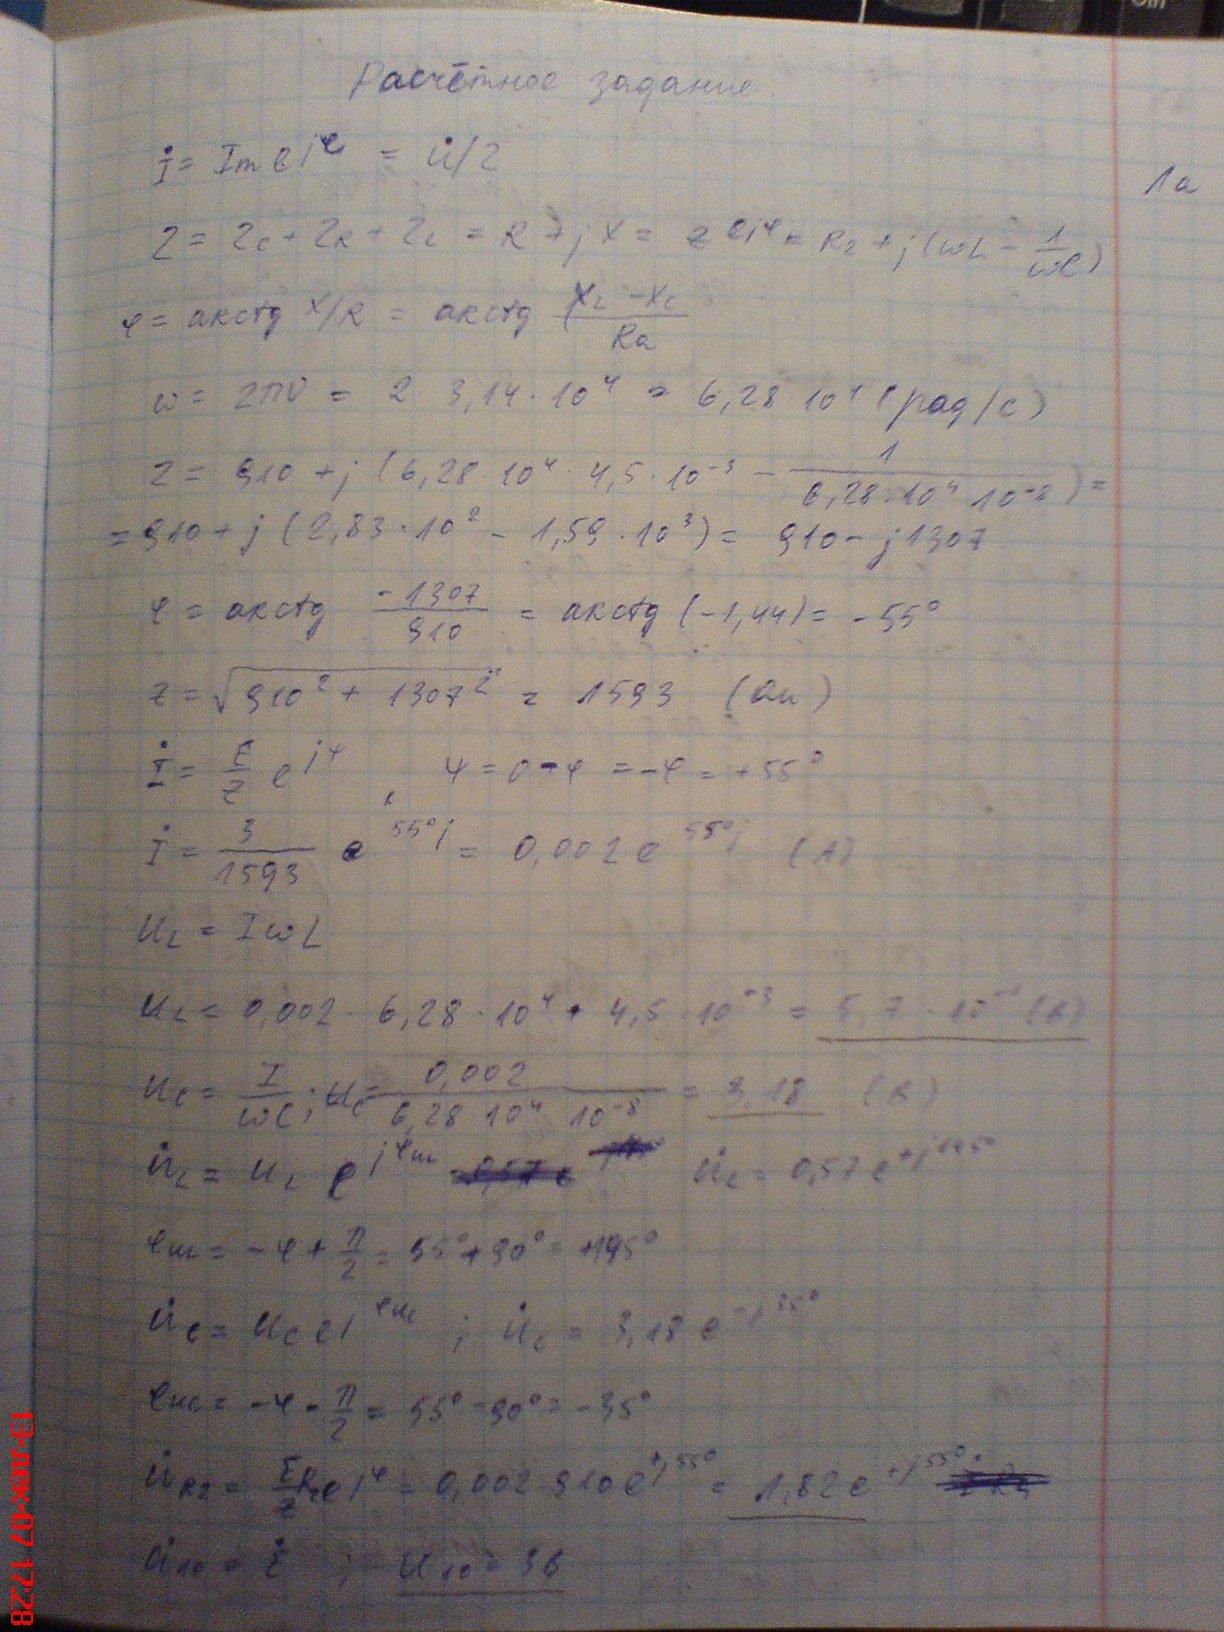 Расчётное задание
İ = Im e^jφ = U̇/Z
1a
Z = Zc + ZR + ZL = R + jX = z e^jφ = R2 + j(ωL - 1/ωC)
φ = арктg X/R = арктg (XL - Xc)/Ra
ω = 2πν = 2 · 3,14 · 10^4 = 6,28 · 10^4 (рад/с)
Z = 910 + j (6,28 · 10^4 · 4,5 · 10^-3 - 1/(6,28 · 10^4 · 10^-8)) =
= 910 + j (2,83 · 10^2 - 1,59 · 10^3) = 910 - j1307
φ = арктg -1307/910 = арктg (-1,44) = -55°
z = √(910^2 + 1307^2) = 1593 (Ом)
İ = E/z e^jψ , ψ = 0 - φ = -φ = +55°
İ = 3/1593 e^55°j = 0,002 e^55°j (А)
UL = IωL
UL = 0,002 · 6,28 · 10^4 · 4,5 · 10^-3 = 5,7 · 10^-1 (В)
Uc = I/ωC ; Uc = 0,002/(6,28 · 10^4 · 10^-8) = 3,18 (В)
U̇L = UL e^jφUL U̇L = 0,57 e^+j145°
φUL = -φ + π/2 = 55° + 90° = +145°
U̇c = Uc e^jφUc ; U̇c = 3,18 e^-j35°
φUc = -φ - π/2 = 55° - 90° = -35°
U̇R2 = E/z R2 e^jψ = 0,002 · 910 e^+j55° = 1,82 e^+j55°
U̇10 = Ė ; U10 = 3В
13-дек-07 17:28